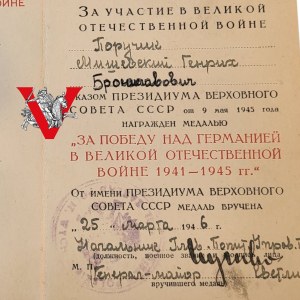 ЗА УЧАСТИЕ В ВЕЛИКОЙ
ОТЕЧЕСТВЕННОЙ ВОЙНЕ
Поручик
Мишевский Генрих
Брониславович
УКАЗОМ ПРЕЗИДИУМА ВЕРХОВНОГО
СОВЕТА СССР от 9 мая 1945 года
НАГРАЖДЕН МЕДАЛЬЮ
„ЗА ПОБЕДУ НАД ГЕРМАНИЕЙ
В ВЕЛИКОЙ ОТЕЧЕСТВЕННОЙ
ВОЙНЕ 1941—1945 гг.“
От имени ПРЕЗИДИУМА ВЕРХОВНОГО
СОВЕТА СССР МЕДАЛЬ ВРУЧЕНА
„25“ марта 1946 г.
Начальник Глв. Полит. Управ.
(должность, военное лица,
М. П. Генерал-майор
вручившего медаль)